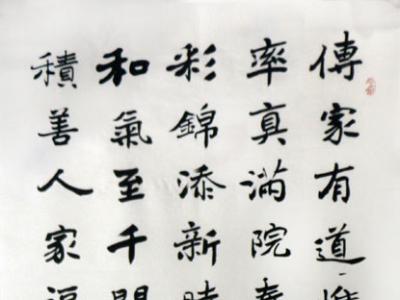 傳家有道
率真滿院春
彩錦添新時
和氣至千門
積善人家福